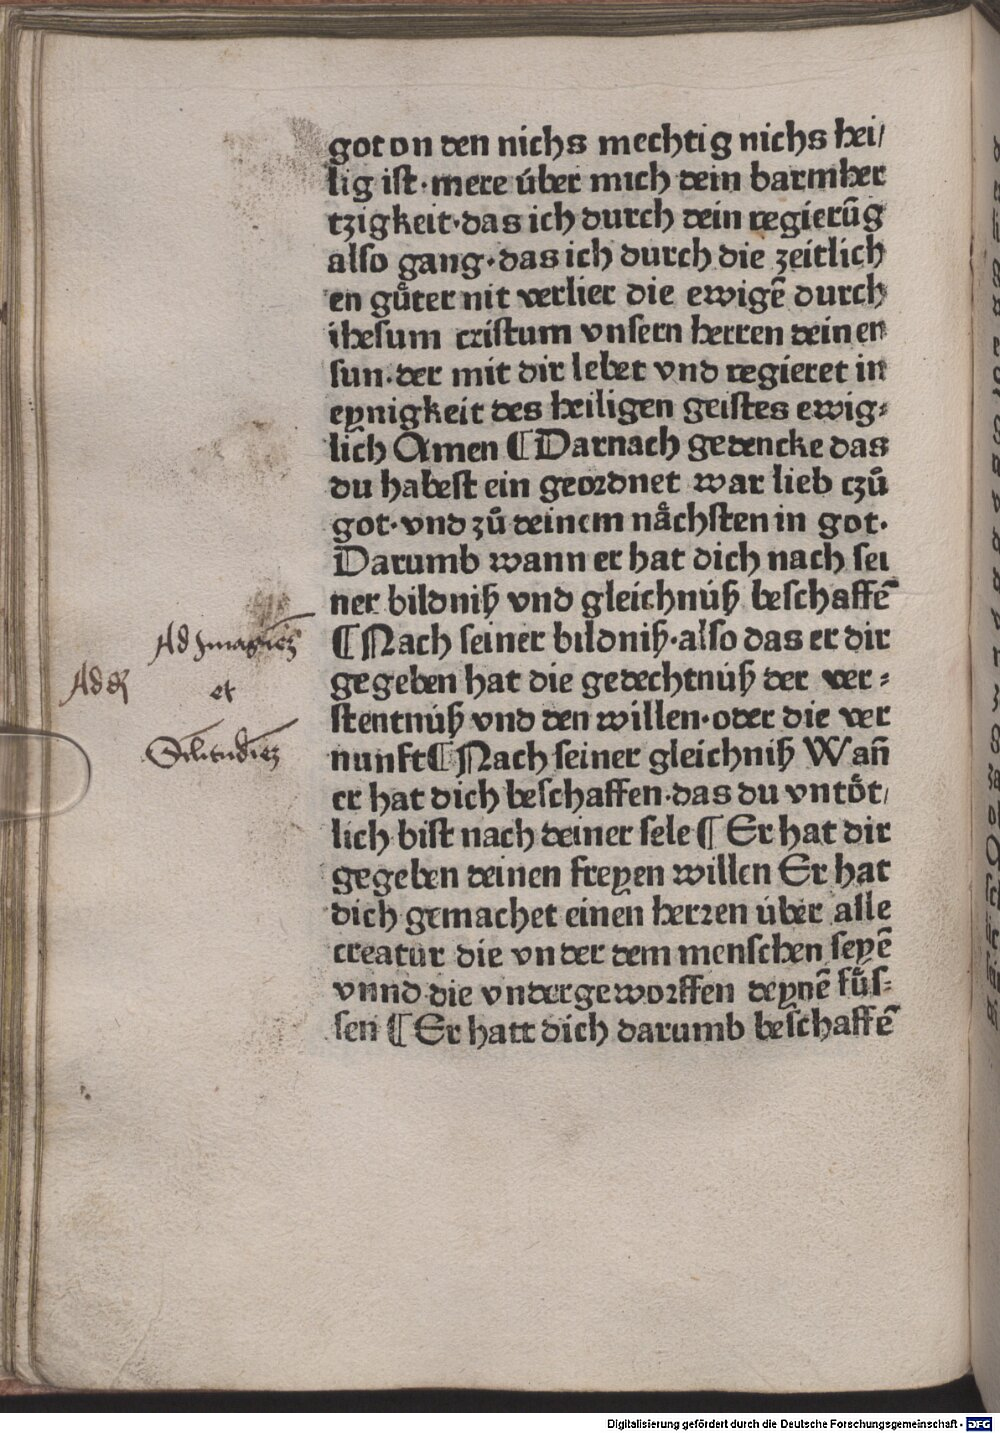 got on den nichs mechtig nichs hei/
lig ist·mere über mich dein barmher
tzigkeit·das ich durch dein regierūg
also gang·das ich durch die zeitlich
en gůter nit verlier die ewigē durch
ihesum cristum vnsern herren deinen
sun·der mit dir lebet vnd regieret in
eynigkeit des heiligen geistes ewig⸗
lich Amen ¶ Darnach gedencke das
du habest ein geordnet war lieb czů
got·vnd zů deinem nåchsten in got.
Darumb wann er hat dich nach sei
ner bildniß vnd gleichnüß beschaffē
¶ Nach seiner bildniß·also das er dir
gegeben hat die gedechtnüß der ver⸗
stentnüß vnd den willen·oder die ver
nunft ¶ Nach seiner gleichniß Wañ
er hat dich beschaffen·das du vntöt/
lich bist nach deiner sele ¶ Er hat dir
gegeben deinen freyen willen Er hat
dich gemachet einen herren über alle
creatur die vnder dem menschen seyē
vnnd die vndergeworffen deynē füs⸗
sen ¶ Er hatt dich darumb beschaffē
Ad Imaginē
et
Silitudinē
Digitalisierung gefördert durch die Deutsche Forschungsgemeinschaft - DFG